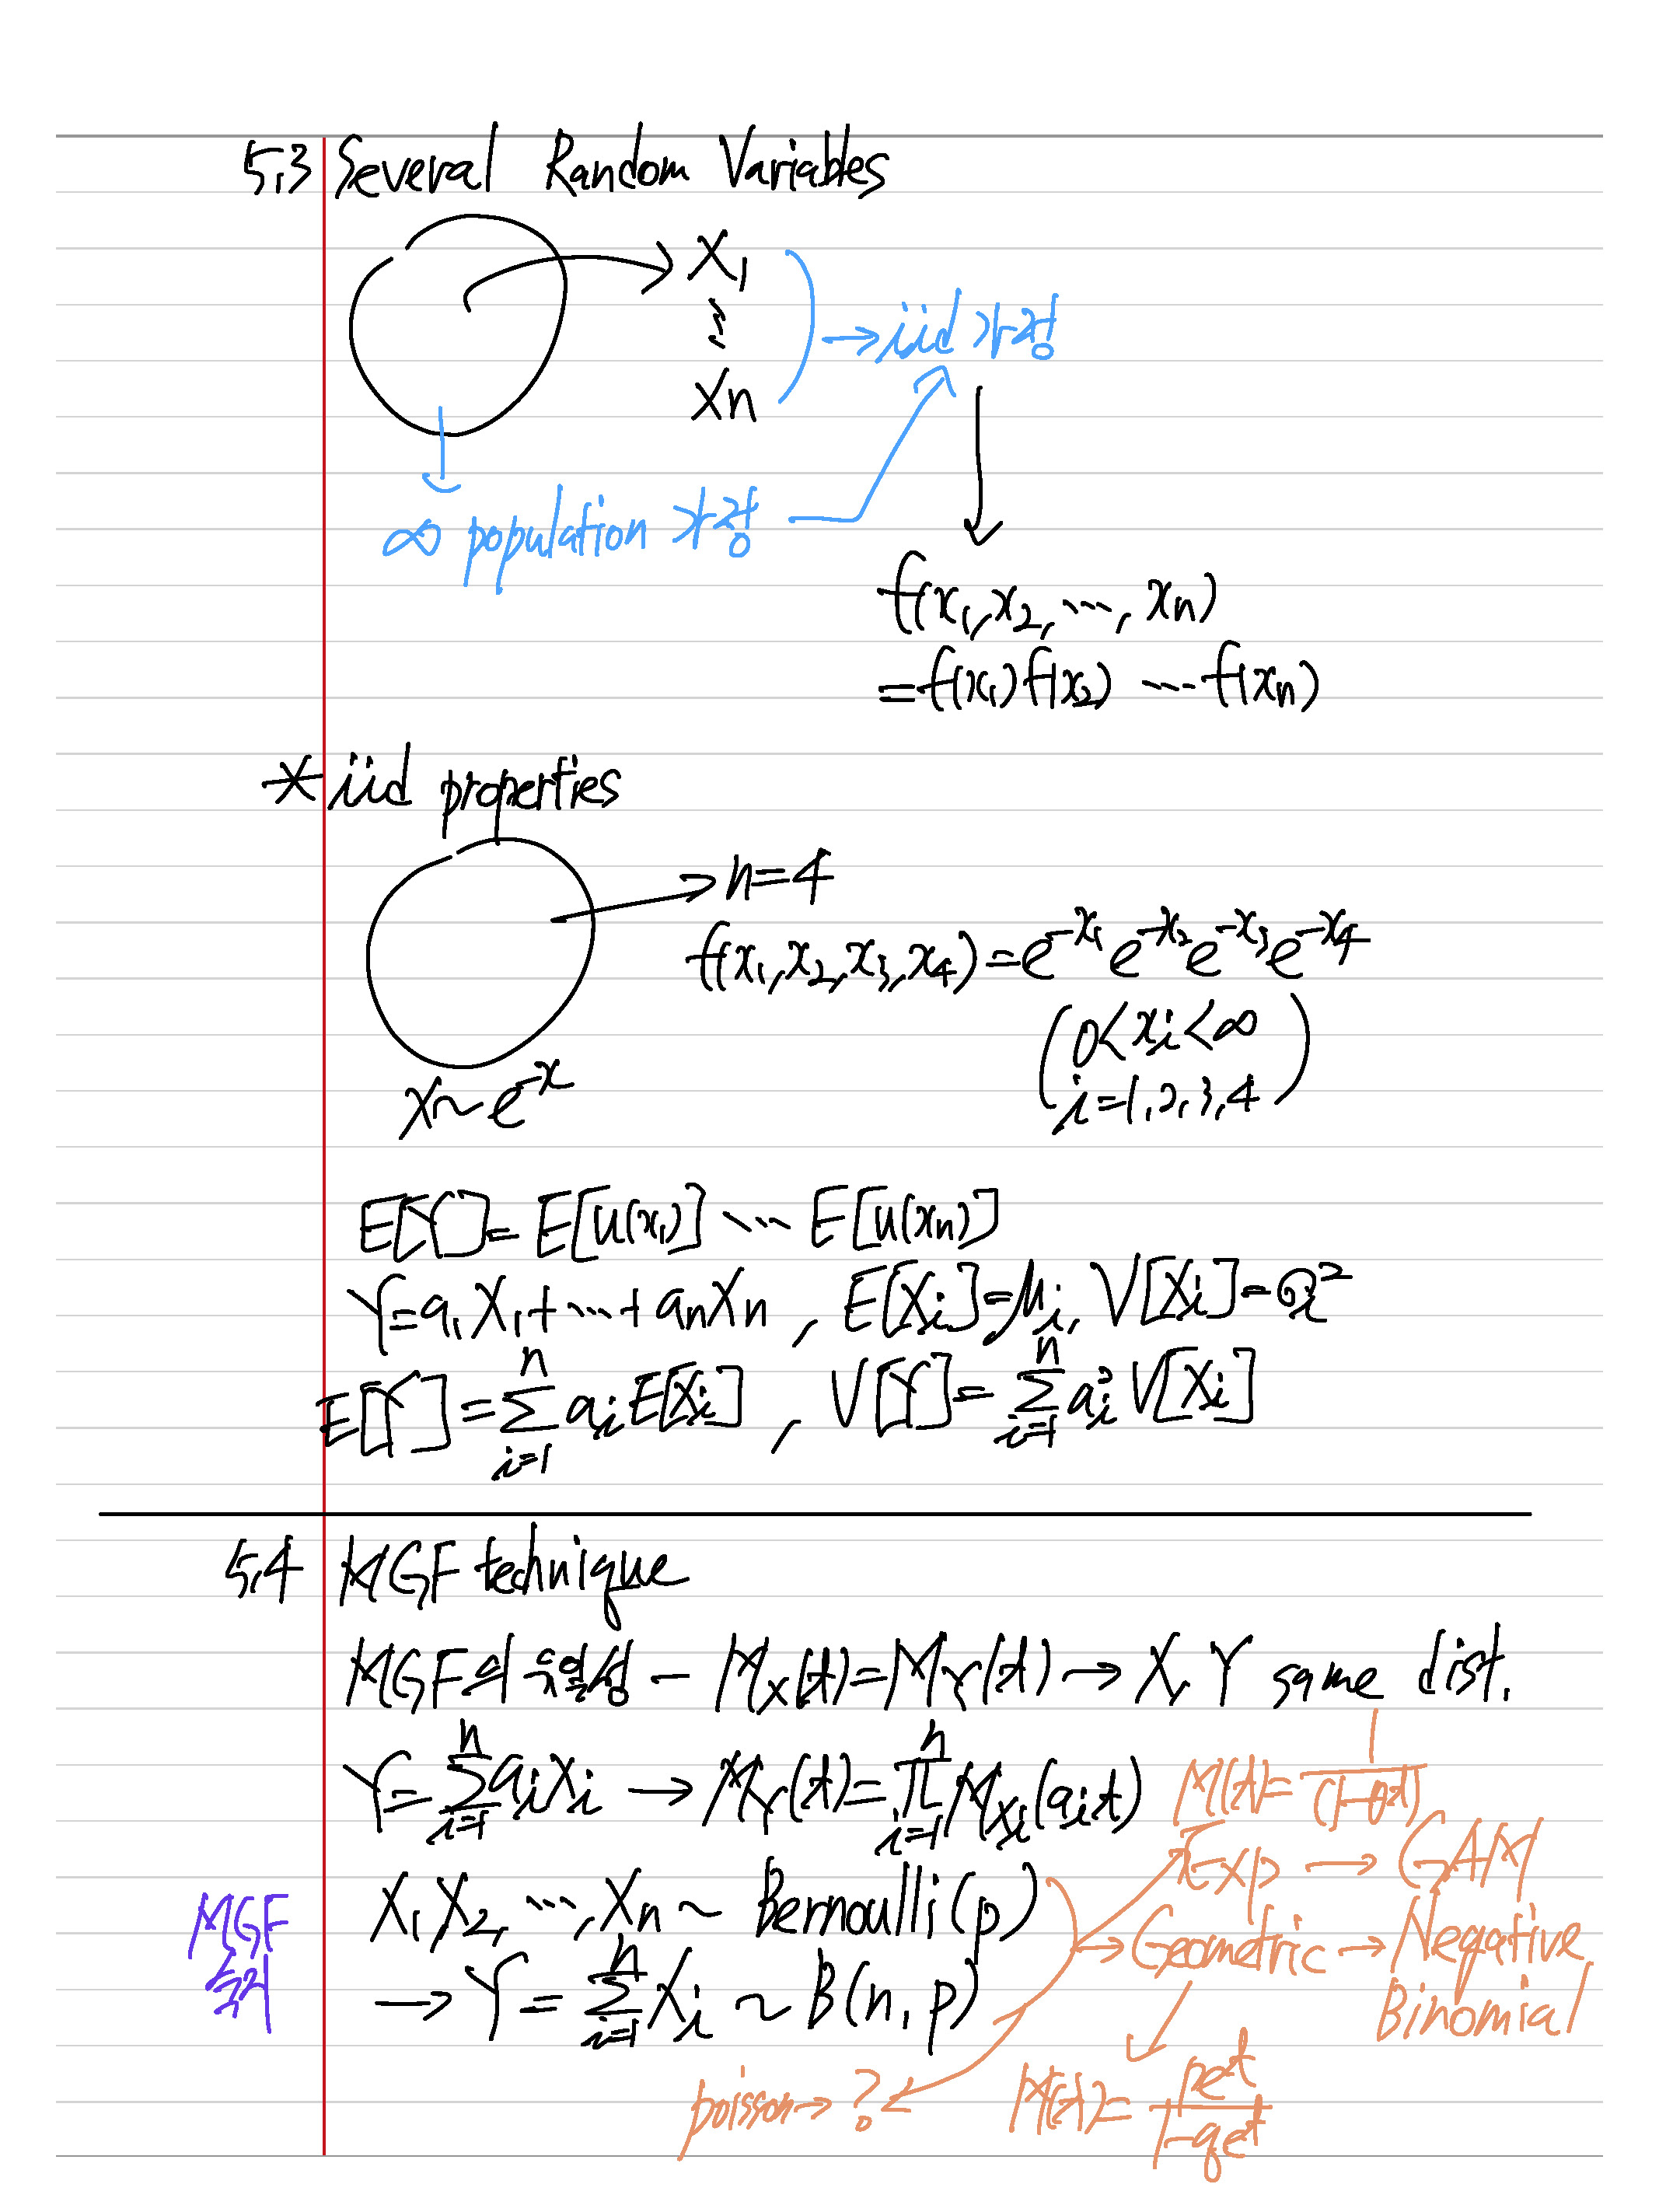 5.3 Several Random Variables
X₁
⋮
Xn
→ iid 가정
∞ population 가정
f(x₁, x₂, ⋯, xn)
= f(x₁) f(x₂) ⋯ f(xn)
* iid properties
→ n=4
f(x₁, x₂, x₃, x₄) = e^{-x₁} e^{-x₂} e^{-x₃} e^{-x₄}
(0 < xi < ∞
i=1, 2, 3, 4)
X ~ e^{-x}
E[Y] = E[u(x₁)] ⋯ E[u(xn)]
Y = a₁X₁ + ⋯ + anXn , E[Xi] = μi, V[Xi] = σi²
E[Y] = Σ_{i=1}^{n} ai E[Xi] , V[Y] = Σ_{i=1}^{n} ai² V[Xi]
5.4 MGF technique
MGF의 유일성 - M_X(t) = M_Y(t) → X, Y same dist.
Y = Σ_{i=1}^{n} aiXi → M_Y(t) = Π_{i=1}^{n} M_{Xi}(ait)
M(t) = 1/(1-θt)
Exp → GAM
X₁, X₂, ⋯, Xn ~ Bernoulli(p)
MGF
→ Geometric → Negative Binomial
→ Y = Σ_{i=1}^{n} Xi ~ B(n, p)
poisson → ?
M(t) = pe^t/(1-qe^t)